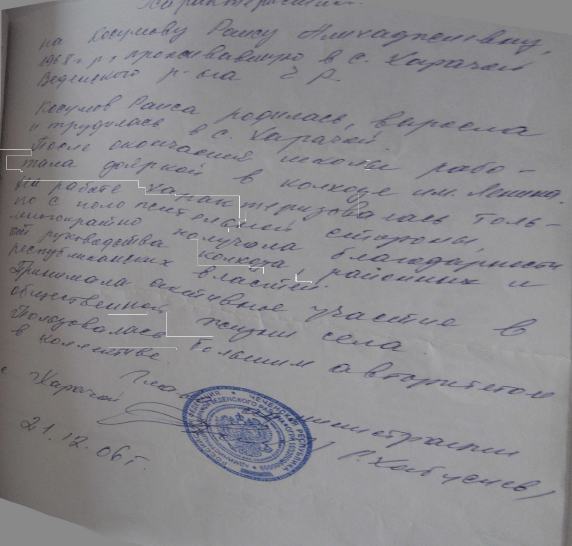 Характеристика
на Косумову Раису Алхаджиевну,
1968 г.р., проживавшую в с. Харачой
Веденского р-на ЧР.
Косумов Раиса родилась, выросла
и трудилась в с. Харачой.
После окончания школы рабо-
тала дояркой в колхозе им. Ленина.
На работе характеризовалась толь-
ко с положительной стороны,
многократно получала благодарности
от руководства колхоза, районных и
республиканских властей.
Принимала активное участие в
общественной жизни села
Пользовалась большим авторитетом
в коллективе.
Глава администрации
с Харачой
21.12.06 г.